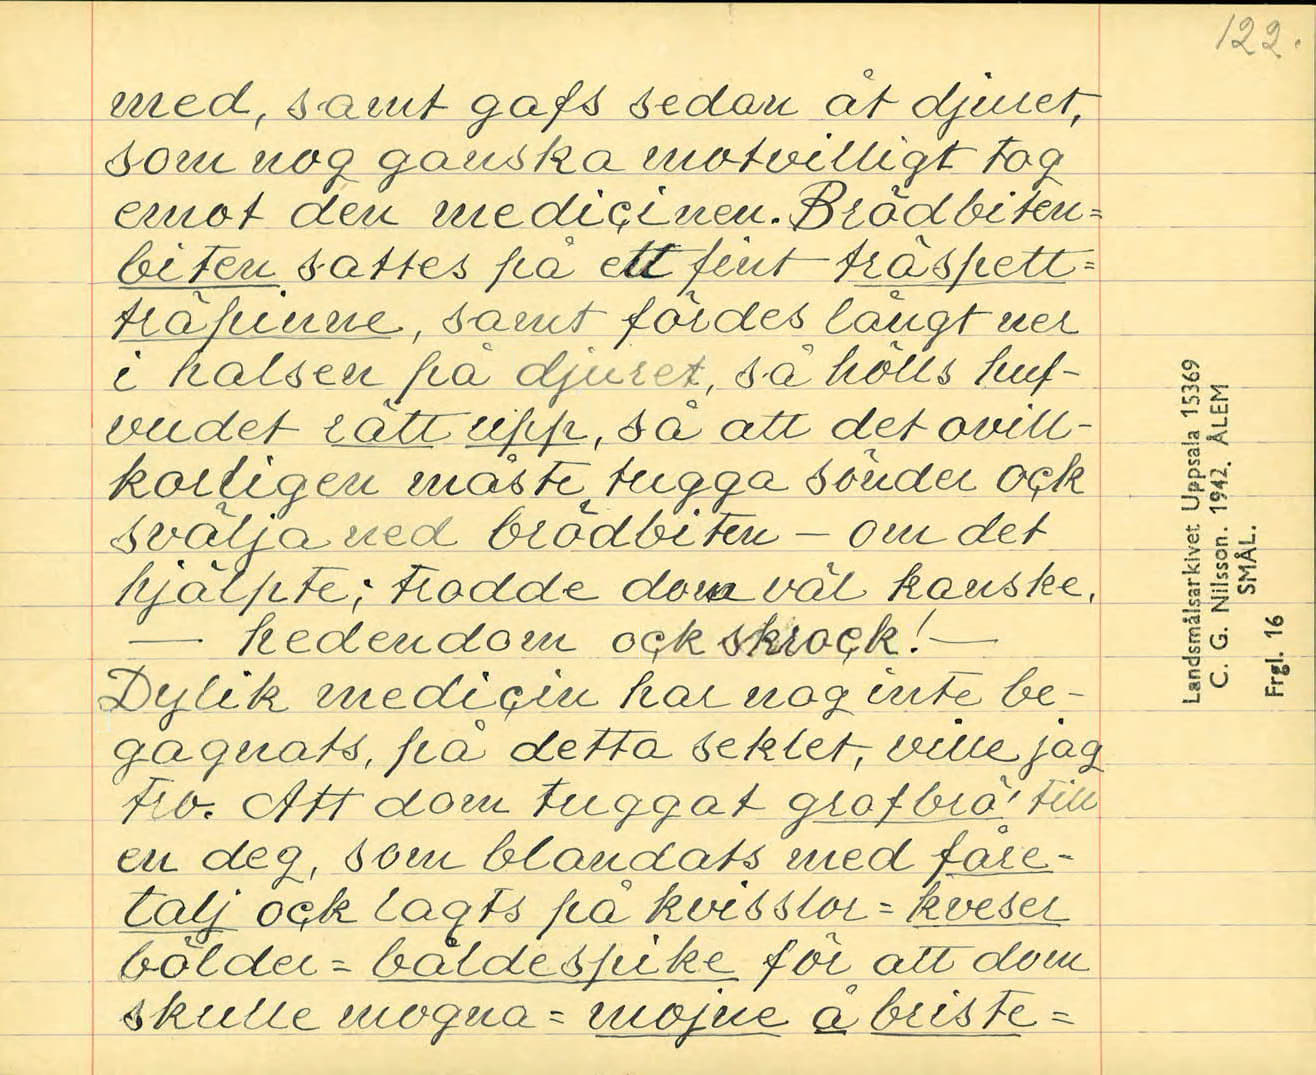 122.
med, samt gafs sedan åt djuret,
som nog ganska motvilligt tog
emot den mediçinen. Brödbiten=
biten sattes på ett fint träspett=
träpinne, samt fördes långt ner
i halsen på djuret, så hölls huf-
vudet rätt upp, så att det ovill-
korligen måste tugga sönder oçk
svälja ned brödbiten – om det
hjälpte; trodde dom väl kanske.
— hedendom oçk skroçk! —
Dylik mediçin har nog inte be-
gagnats, på detta seklet, ville jag
tro. Att dom tuggat grofbrö' till
en deg, som blandats med fåre-
talj oçk lagts på kvisslor = kveser
bölder = båldespike för att dom
skulle mogna = mojne å briste =
Landsmålsarkivet Uppsala 15369
C. G. Nilsson. 1942. ÅLEM
SMÅL.
Frgl. 16